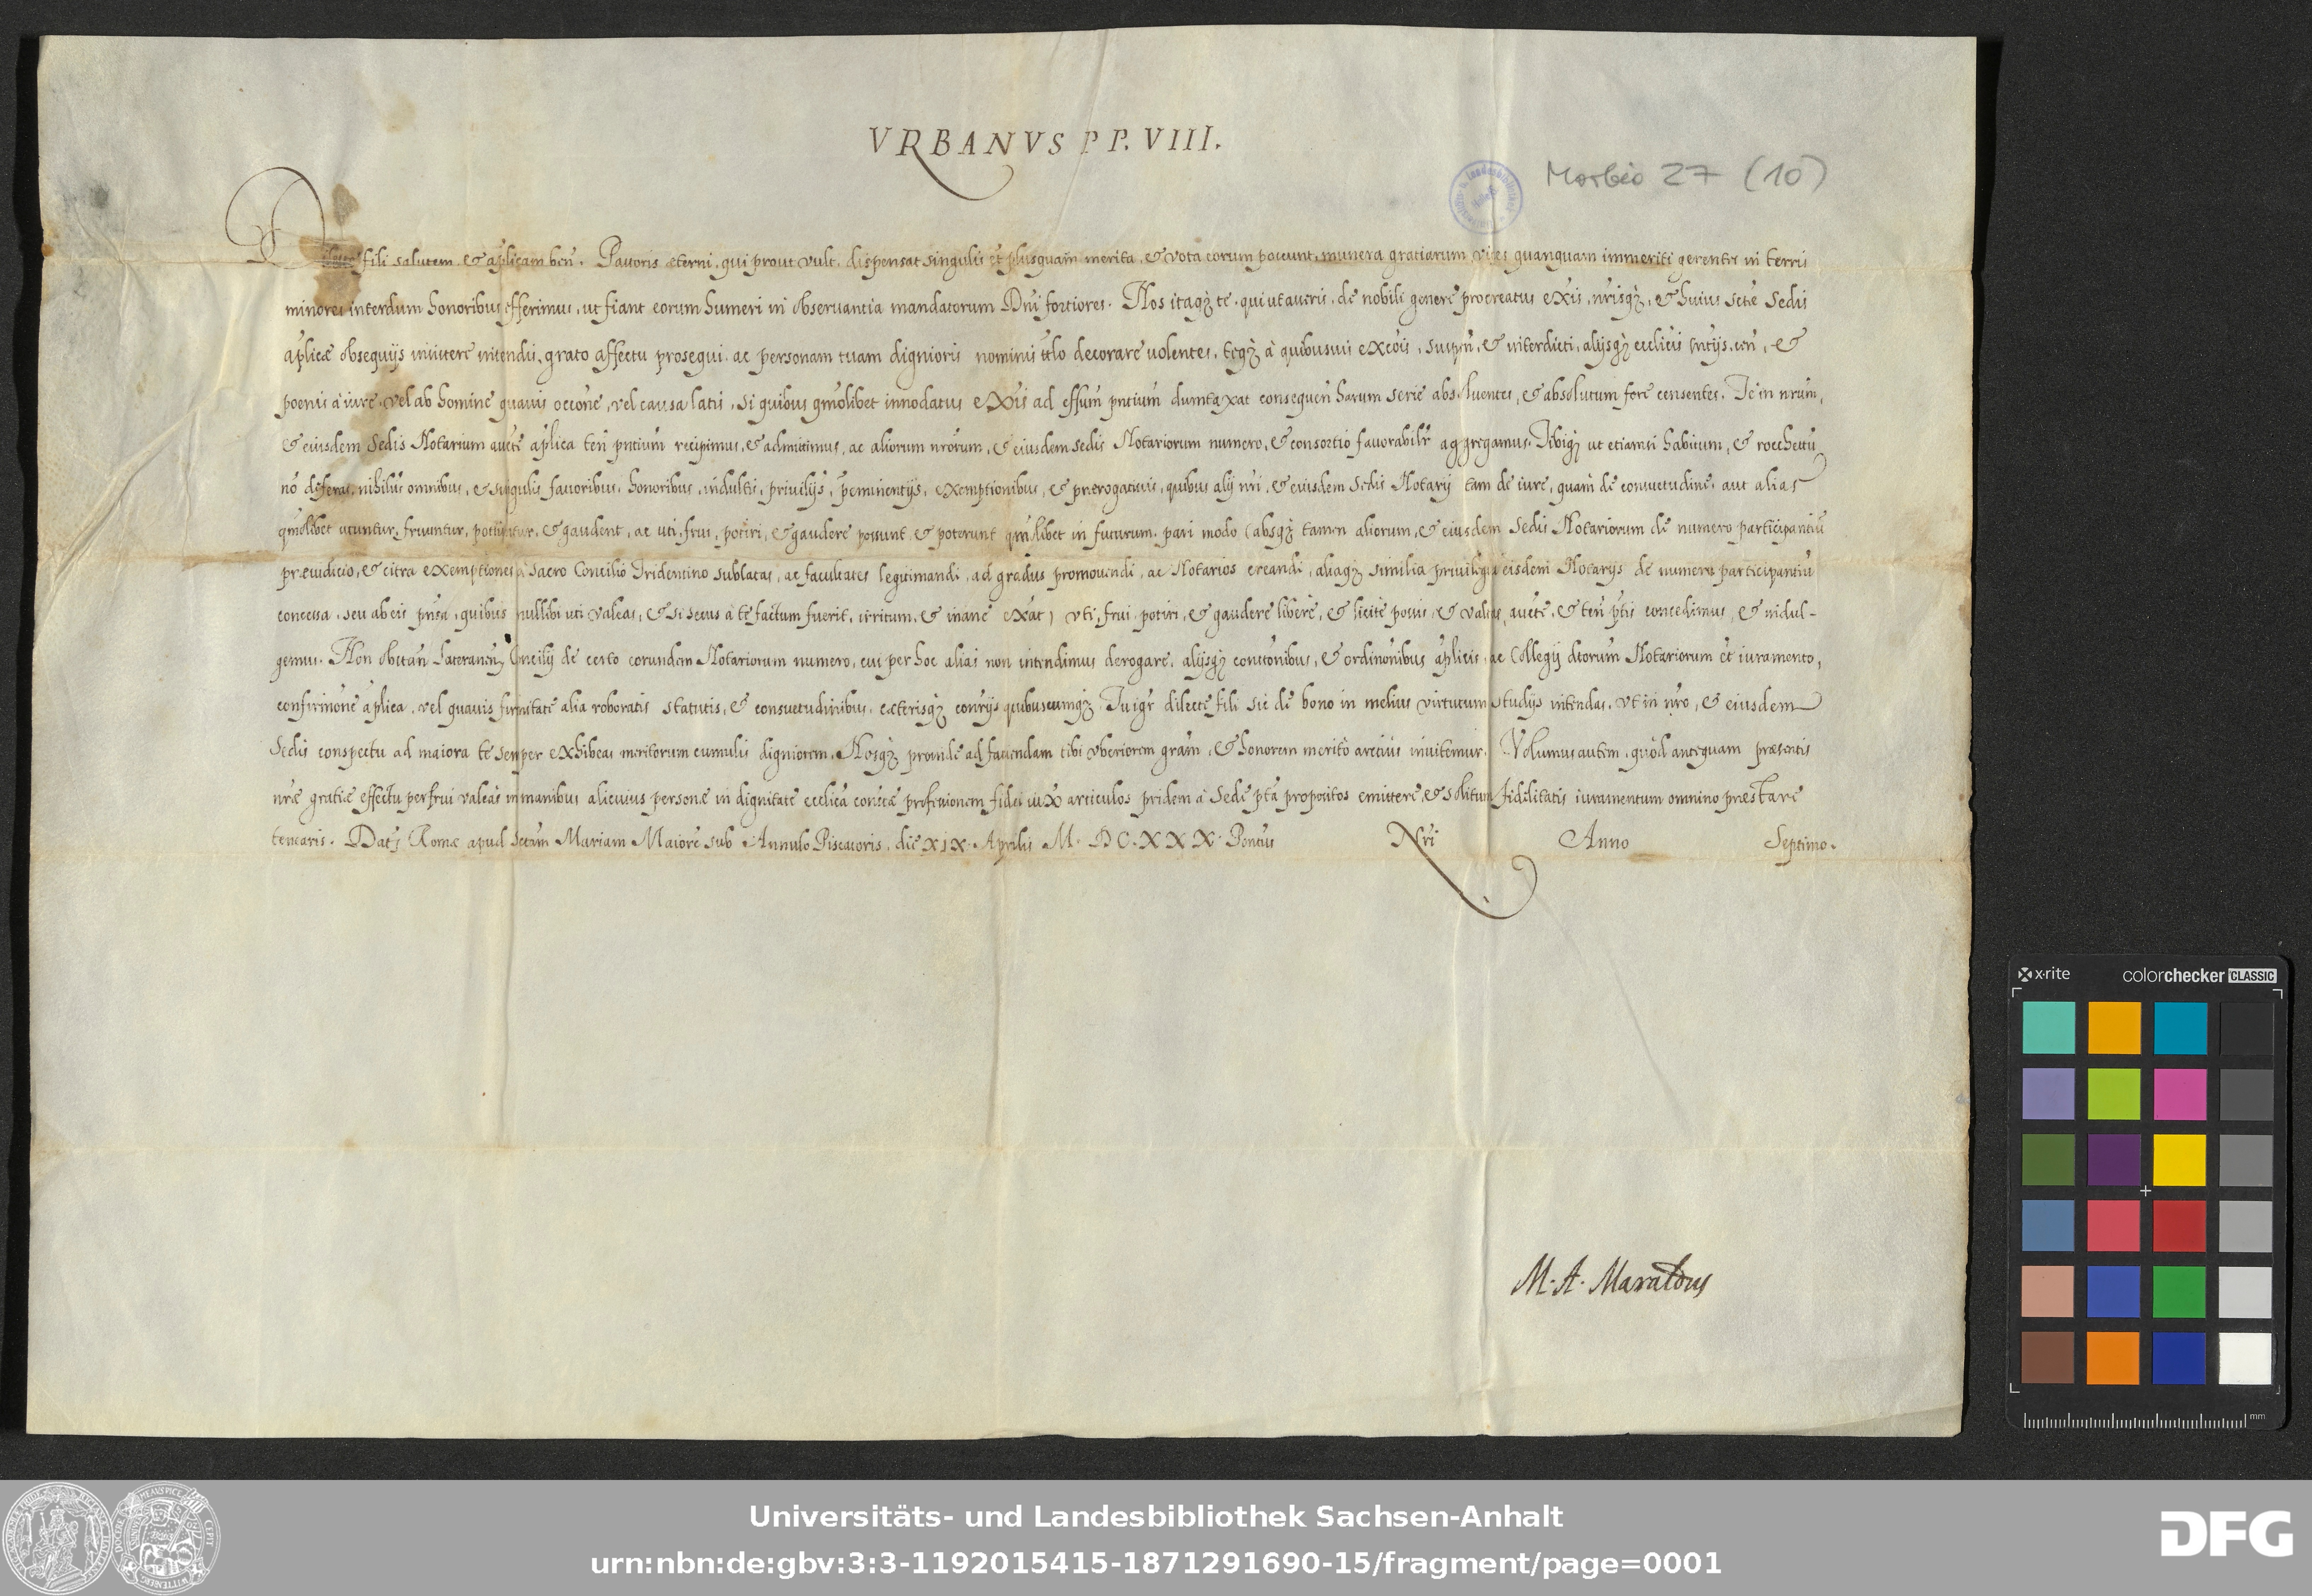 VRBANVS PP. VIII.
Morbio 27 (10)
fili salutem & aplicam ben. Pastoris æterni, qui prout vult, dispensat singulis et plusquam merita, & vota eorum poscunt, munera gratiarum vices quanquam immeriti gerentes in terris
minores interdum honoribus efferimus, ut fiant eorum humeri in observantia mandatorum Dñi fortiores. Nos itaqȝ te, qui ut asseris, de nobili genere procreatus exis, nrisqȝ, & huius sctē Sedis
aplicæ obsequijs insistere intendis, grato affectu prosequi, ac personam tuam dignioris nominis ttlo decorare volentes, teqȝ à quibusvis excōis, suspen, & interdicti, alijsqȝ ecclicis sntijs, cen, &
poenis à iure, vel ab homine quavis occone, vel causa latis, si quibus qmolibet innodatus exis ad effum pntium dumtaxat consequen harum serie absoluentes, & absolutum fore censentes. Te in nrum,
& eiusdem Sedis Notarium aucte aplica ten pntium recipimus, & admittimus, ac aliorum nrorum, & eiusdem sedis Notariorum numero, & consortio favorabilr aggregamus. Tibiqȝ ut etiamsi habitum, & rocchettu
nō deferas, nihilus omnibus, & singulis favoribus, honoribus, indultis, privilijs, peminentijs, exemptionibus, & prerogativis, quibus alij nri, & eiusdem Sedis Notarij tam de iure, quàm de consuetudine, aut alias
qmolibet utuntur, fruuntur, potiuntur, & gaudent, ac uti, frui, potiri, & gaudere possunt, & poterunt qmlibet in futurum, pari modo (absqȝ tamen aliorum, & eiusdem Sedis Notariorum de numero participantiū
præiudicio, & citra exemptiones à Sacro Concilio Tridentino sublatas, ac facultates legitimandi, ad gradus promovendi, ac Notarios creandi, aliaqȝ similia privilegia eisdem Notarijs de numero participantiū
concessa, seu ab eis pnsa, quibus nullibi uti valeas, & si secus à te factum fuerit, irritum, & inane exāt) vti, frui, potiri, & gaudere liberè, & licitè possis, & valeas, aucte, & ten ptis concedimus, & indul-
gemus. Non obstan Lateranen Concilij de certo eorundem Notariorum numero, cui per hoc alias non intendimus derogare, alijsqȝ constonibus, & ordinonibus aplicis, ac Collegij dtorum Notariorum et iuramento,
confirmone aplica, vel quavis firmitate alia roboratis statutis, & consuetudinibus, cæterisqȝ contrijs quibuscumqȝ. Tu igr dilecte fili sic de bono in melius virtutum studijs intendas, vt in nro, & eiusdem
Sedis conspectu ad maiora te semper exhibeas meritorum cumulis digniorem. Nosqȝ proinde ad faciendam tibi vberiorem gram, & honorem meritò arctius invitemur. Volumus autem, quòd antequam præsentis
nræ gratiæ effectu perfrui valeas in manibus alicuius personæ in dignitate ecclica constæ professionem fidei iux articulos pridem à Sede pta propositos emittere, & solitum fidelitatis iuramentum omnino præstare
tenearis. Dat Romæ apud Sctam Mariam Maiorē sub Annulo Piscatoris, die XIX. Aprilis M. DC. XXX. Pontus Nri Anno Septimo.
M. A. Maraldus
x-rite
colorchecker CLASSIC
mm
Universitäts- und Landesbibliothek Sachsen-Anhalt
urn:nbn:de:gbv:3:3-1192015415-1871291690-15/fragment/page=0001
DFG